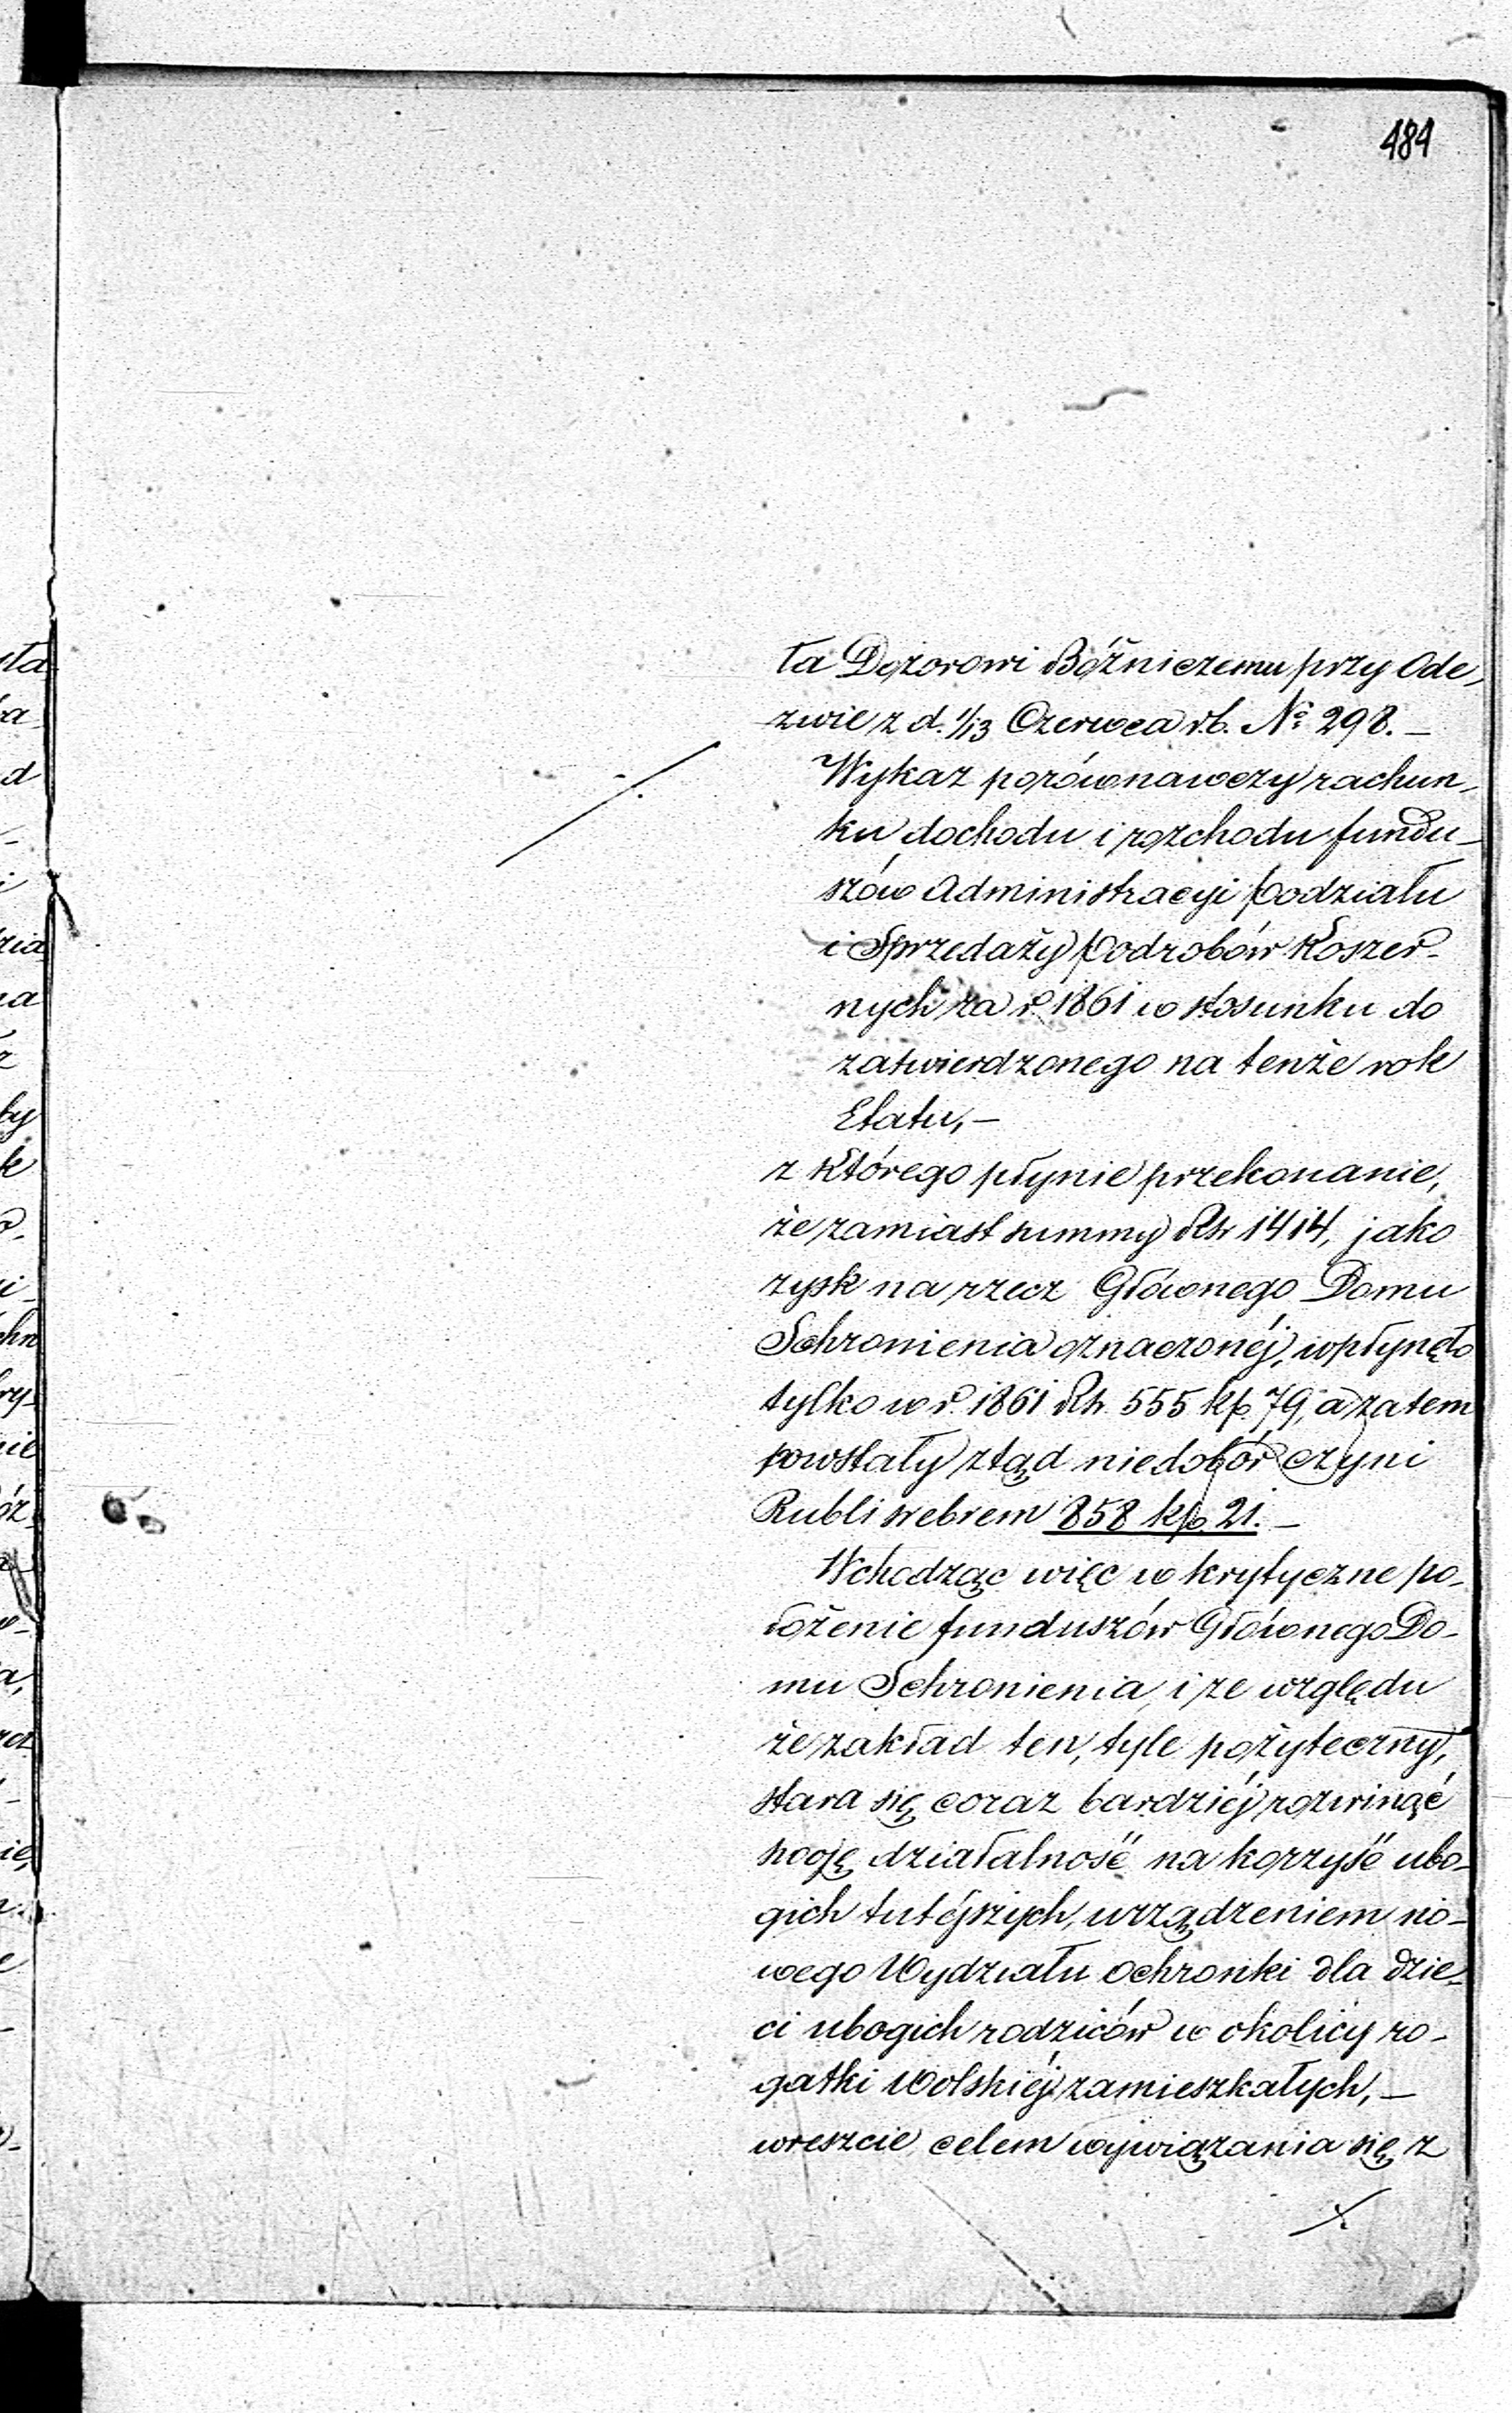 484
ła Dozorowi Bóżniczemu przy Ode,
zwie z d. 1/13 Czerwca r.b. № 298. –
Wykaz porównawczy rachun,
ku dochodu i rozchodu fundu-
szów Administracyi Podziału
i Sprzedaży Podrobów Koszer-
nych za r. 1861 w stosunku do
zatwierdzonego na tenże rok
Etatu, –
z którego płynie przekonanie,
że zamiast summy Rs. 1414, jako
zysk na rzecz Głównego Domu
Schronienia oznaczonéj, wpłynęło
tylko w r. 1861 Rs. 555 kp 79, a zatem
powstały ztąd niedobór czyni
Rubli srebrem 858 kp 21. –
Wchodząc więc w krytyczne po-
łożenie funduszów Głównego Do-
mu Schronienia, i ze względu
że zakład ten, tyle pożyteczny,
stara się coraz bardziéj rozwinąć
swoję działalność na korzyść ubo-
gich tutéjszych, urządzeniem no-
wego Wydziału ochronki dla dzie-
ci ubogich rodziców w okolicy ro-
gatki Wolskiéj zamieszkałych, –
wreszcie celem wywiązania się z